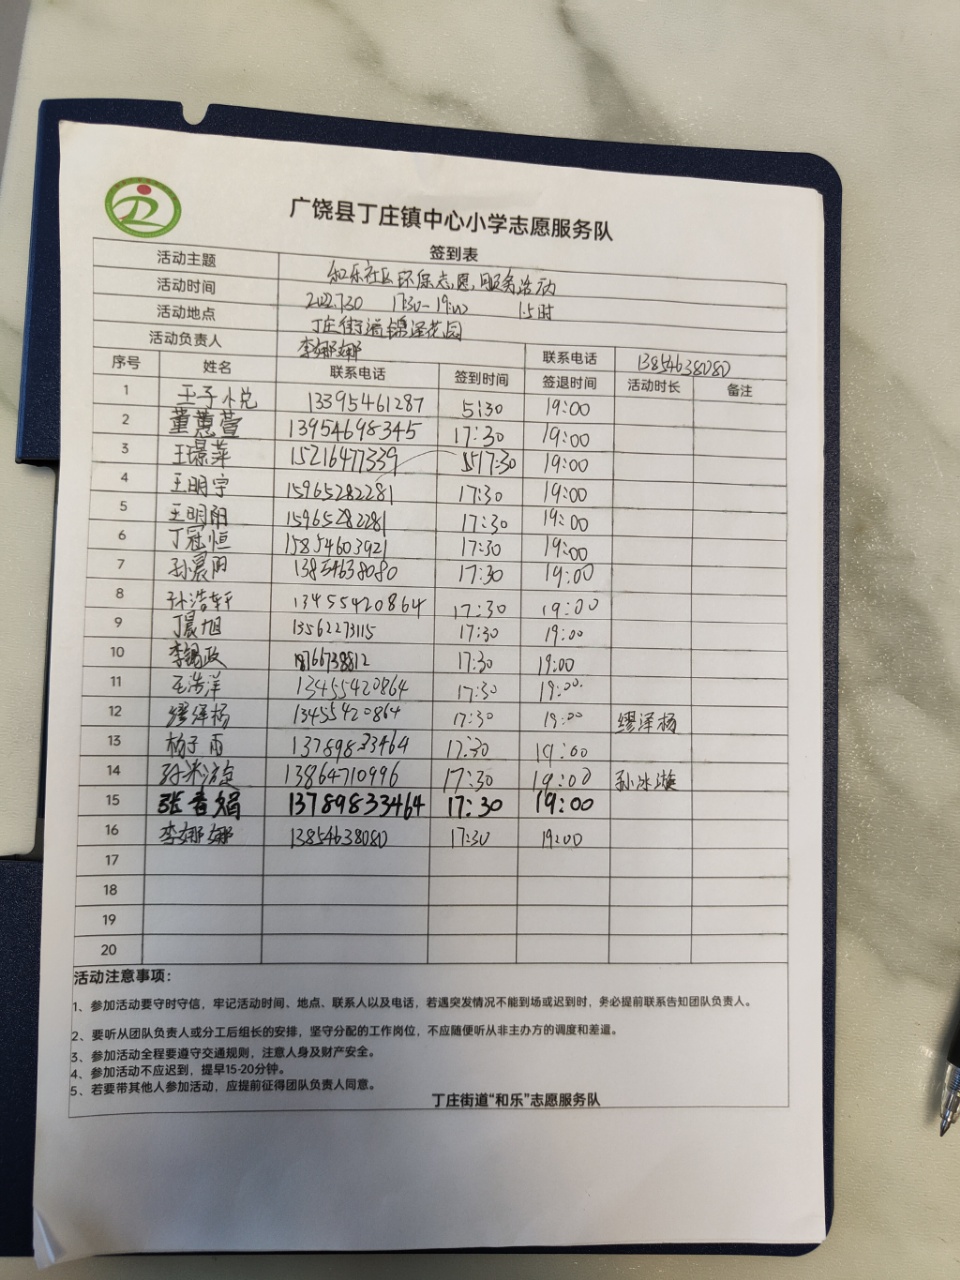 广饶县丁庄镇中心小学志愿服务队
签到表
活动主题 和乐社区环保志愿服务活动
活动时间 2022.7.30 17:30-19:00 1.5时
活动地点 丁庄街道锦泽花园
活动负责人 李娜娜 联系电话 13854638080
序号 姓名 联系电话 签到时间 签退时间 活动时长 备注
1 王子小兑 13395461287 5:30 19:00
2 董蕙萱 13954698345 17:30 19:00
3 王璟萍 15216477339 17:30 19:00
4 王明宇 15965282281 17:30 19:00
5 王明阳 15965282281 17:30 19:00
6 丁冠恒 15854603921 17:30 19:00
7 孙晨阳 13854638080 17:30 19:00
8 孙浩轩 13455420864 17:30 19:00
9 丁晨旭 13562273115 17:30 19:00
10 李锡政 18766738812 17:30 19:00
11 王浩洋 13455420864 17:30 19:00
12 缪泽杨 13455420864 17:30 19:00 缪泽杨
13 杨子雨 13789833464 17:30 19:00
14 孙冰漩 13864710996 17:30 19:00 孙冰漩
15 张香娟 13789833464 17:30 19:00
16 李娜娜 13854638080 17:30 19:00
17
18
19
20
活动注意事项：
1、参加活动要守时守信，牢记活动时间、地点、联系人以及电话，若遇突发情况不能到场或迟到时，务必提前联系告知团队负责人。
2、要听从团队负责人或分工后组长的安排，坚守分配的工作岗位，不应随便听从非主办方的调度和差遣。
3、参加活动全程要遵守交通规则，注意人身及财产安全。
4、参加活动不应迟到，提早15-20分钟。
5、若要带其他人参加活动，应提前征得团队负责人同意。
丁庄街道“和乐”志愿服务队